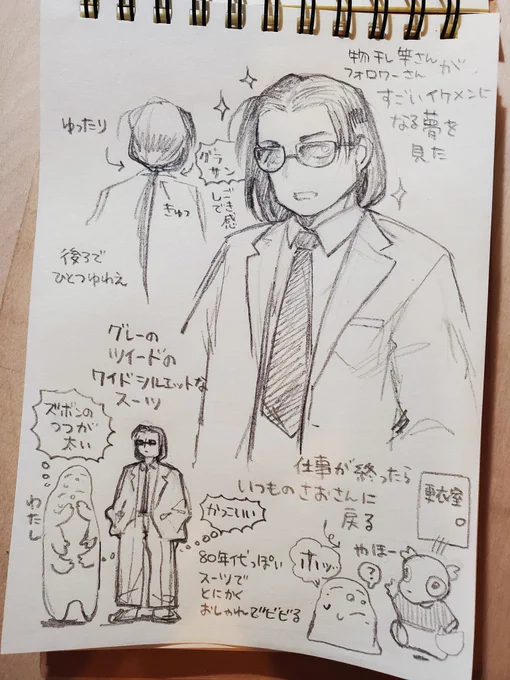 物干し竿さんが
フォロワーさん
すごいイケメンに
なる夢を
見た
ゆったり
グラサン
しごでき感
きゅっ
後ろで
ひとつゆわえ
グレーの
ツイードの
ワイドシルエットな
スーツ
ズボンの
つつが
太い
わたし
かっこいい
80年代っぽい
スーツで
とにかく
おしゃれでビビる
仕事が終ったら
いつものさおさんに
戻る
更衣室
ホッ
やほー
?